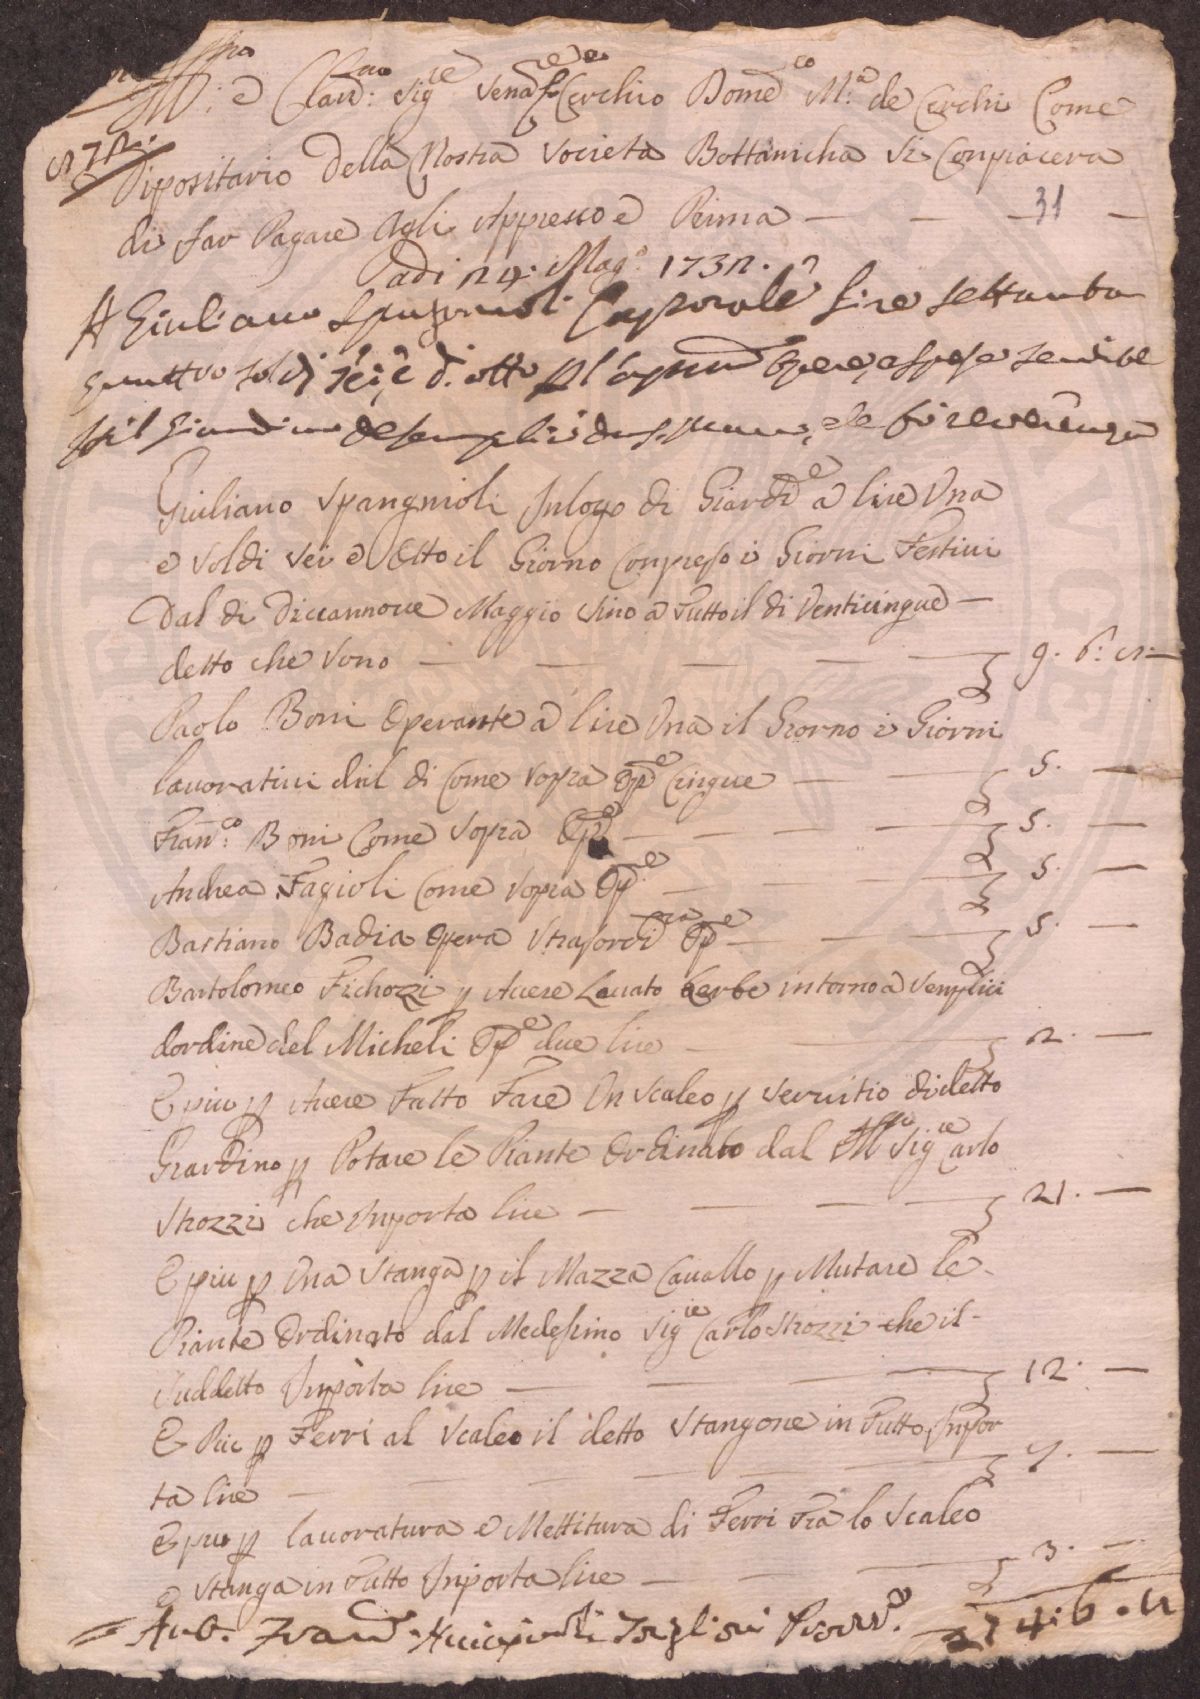 Ill:mo e Clar:mo Sig:re Sena:re Cerchio Bome:co M:a de Cerchi Come
Dipositario Della Nostra Società Bottanicha si Conpiacera
di far Pagare Agli Appresso e Prima — — —
31
Adi 24. Mag:o 1732.
A Giuliano Spagnoli Caporale lire settanta
quattro soldi sei, e d. otto p opere, e spese servite
p il Giardino de semplici
Giuliano Spangnioli Inlogo di Giardi:e a lire Una
e Soldi Sei e Otto il Giorno Conpreso i Giorni Festiui
Dal di Diciannoue Maggio Sino a Tutto il di Venticinque —
detto che Sono — — — — — 9. 6: 8:—
Paolo Boni Operante a lire Una il Giorno i Giorni
lauoratiui dal di Come Sopra Op:e Cinque — — — 5. —
Fran:co Boni Come Sopra Op:e — — — — 5. —
Andrea Fagioli Come Sopra Op:e — — — 5. —
Bastiano Badia Opera Straordi:ra Op:e — — — 5. —
Bartolomeo Fichozzi p Auere Leuato Lerbe intorno a Senplici
dordine del Micheli Op:e due lire — — 2. —
E piu p Auere Fatto Fare Un Scaleo p Seruitio didetto
Giardino p Potare le Piante Ordinato dal Ill:mo Sig:re Carlo
Strozzi che Inporta lire — — — — 21. —
E piu p Una Stanga p il Mazza Cauallo p Mutare le
Piante Ordinato dal Medesimo Sig:re Carlo Strozzi che il
Suddetto Inporta lire — — — — 12. —
E Piu p Ferri al Scaleo il detto Stangone in Tutto Inpor
ta lire — — — — — 7. —
E piu p lauoratura e Mettitura di Ferri Fra lo Scaleo
e Stanga in Tutto Inporta lire — — — 3. —
= Ant. Fran:co Acciaiuoli Prouu:re 74. 6. 8